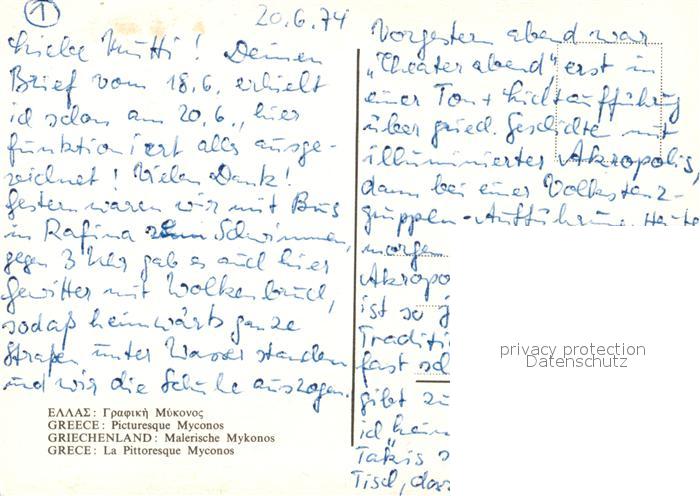 1
20.6.74
Liebe Mutti! Deinen
Brief vom 18.6. erhielt
ich schon am 20.6., hier
funktioniert alles ausge-
zeichnet! Vielen Dank!
Gestern waren wir mit Bus
in Rafina zum Schwimmen,
gegen 3 Uhr gab es auch hier
Gewitter mit Wolkenbruch,
sodaß heimwärts ganze
Straßen unter Wasser standen
und wir die Schuhe auszogen.
ΕΛΛΑΣ: Γραφικὴ Μύκονος
GREECE: Picturesque Myconos
GRIECHENLAND: Malerische Mykonos
GRECE: La Pittoresque Myconos
Vorgestern abend war
"Theaterabend", erst in
einer Ton + Lichtaufführung
über griech. Geschichte mit
illuminierter Akropolis,
dann bei einer Volkstanz-
gruppen-Aufführung. Heute
morgen
Akropo
ist so
Traditi
fast sch
gibt zu
ich "heim
Takis
Tisch, das
privacy protection
Datenschutz